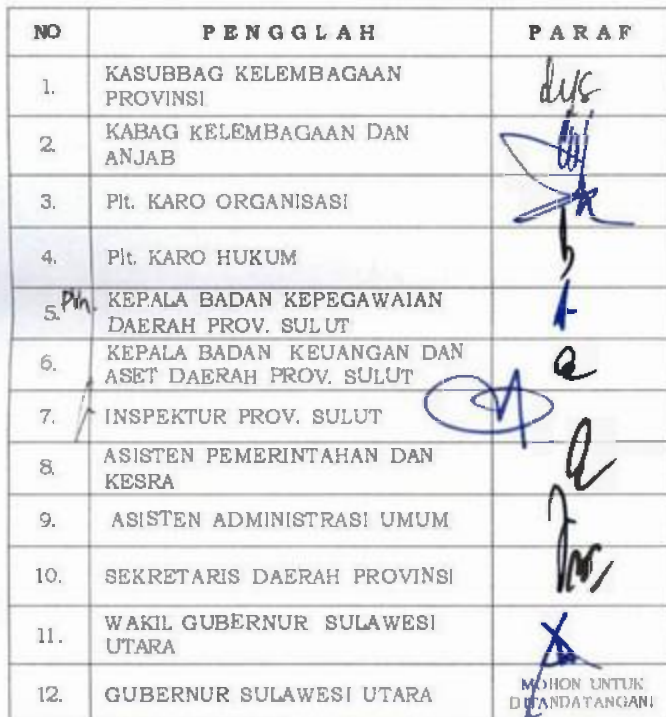 NO PENGGLAH PARAF
1. KASUBBAG KELEMBAGAAN
PROVINSI
2. KABAG KELEMBAGAAN DAN
ANJAB
3. Plt. KARO ORGANISASI
4. Plt. KARO HUKUM
5. Plh. KEPALA BADAN KEPEGAWAIAN
DAERAH PROV. SULUT
6. KEPALA BADAN KEUANGAN DAN
ASET DAERAH PROV. SULUT
7. INSPEKTUR PROV. SULUT
8. ASISTEN PEMERINTAHAN DAN
KESRA
9. ASISTEN ADMINISTRASI UMUM
10. SEKRETARIS DAERAH PROVINSI
11. WAKIL GUBERNUR SULAWESI
UTARA
12. GUBERNUR SULAWESI UTARA MOHON UNTUK
DITANDATANGANI